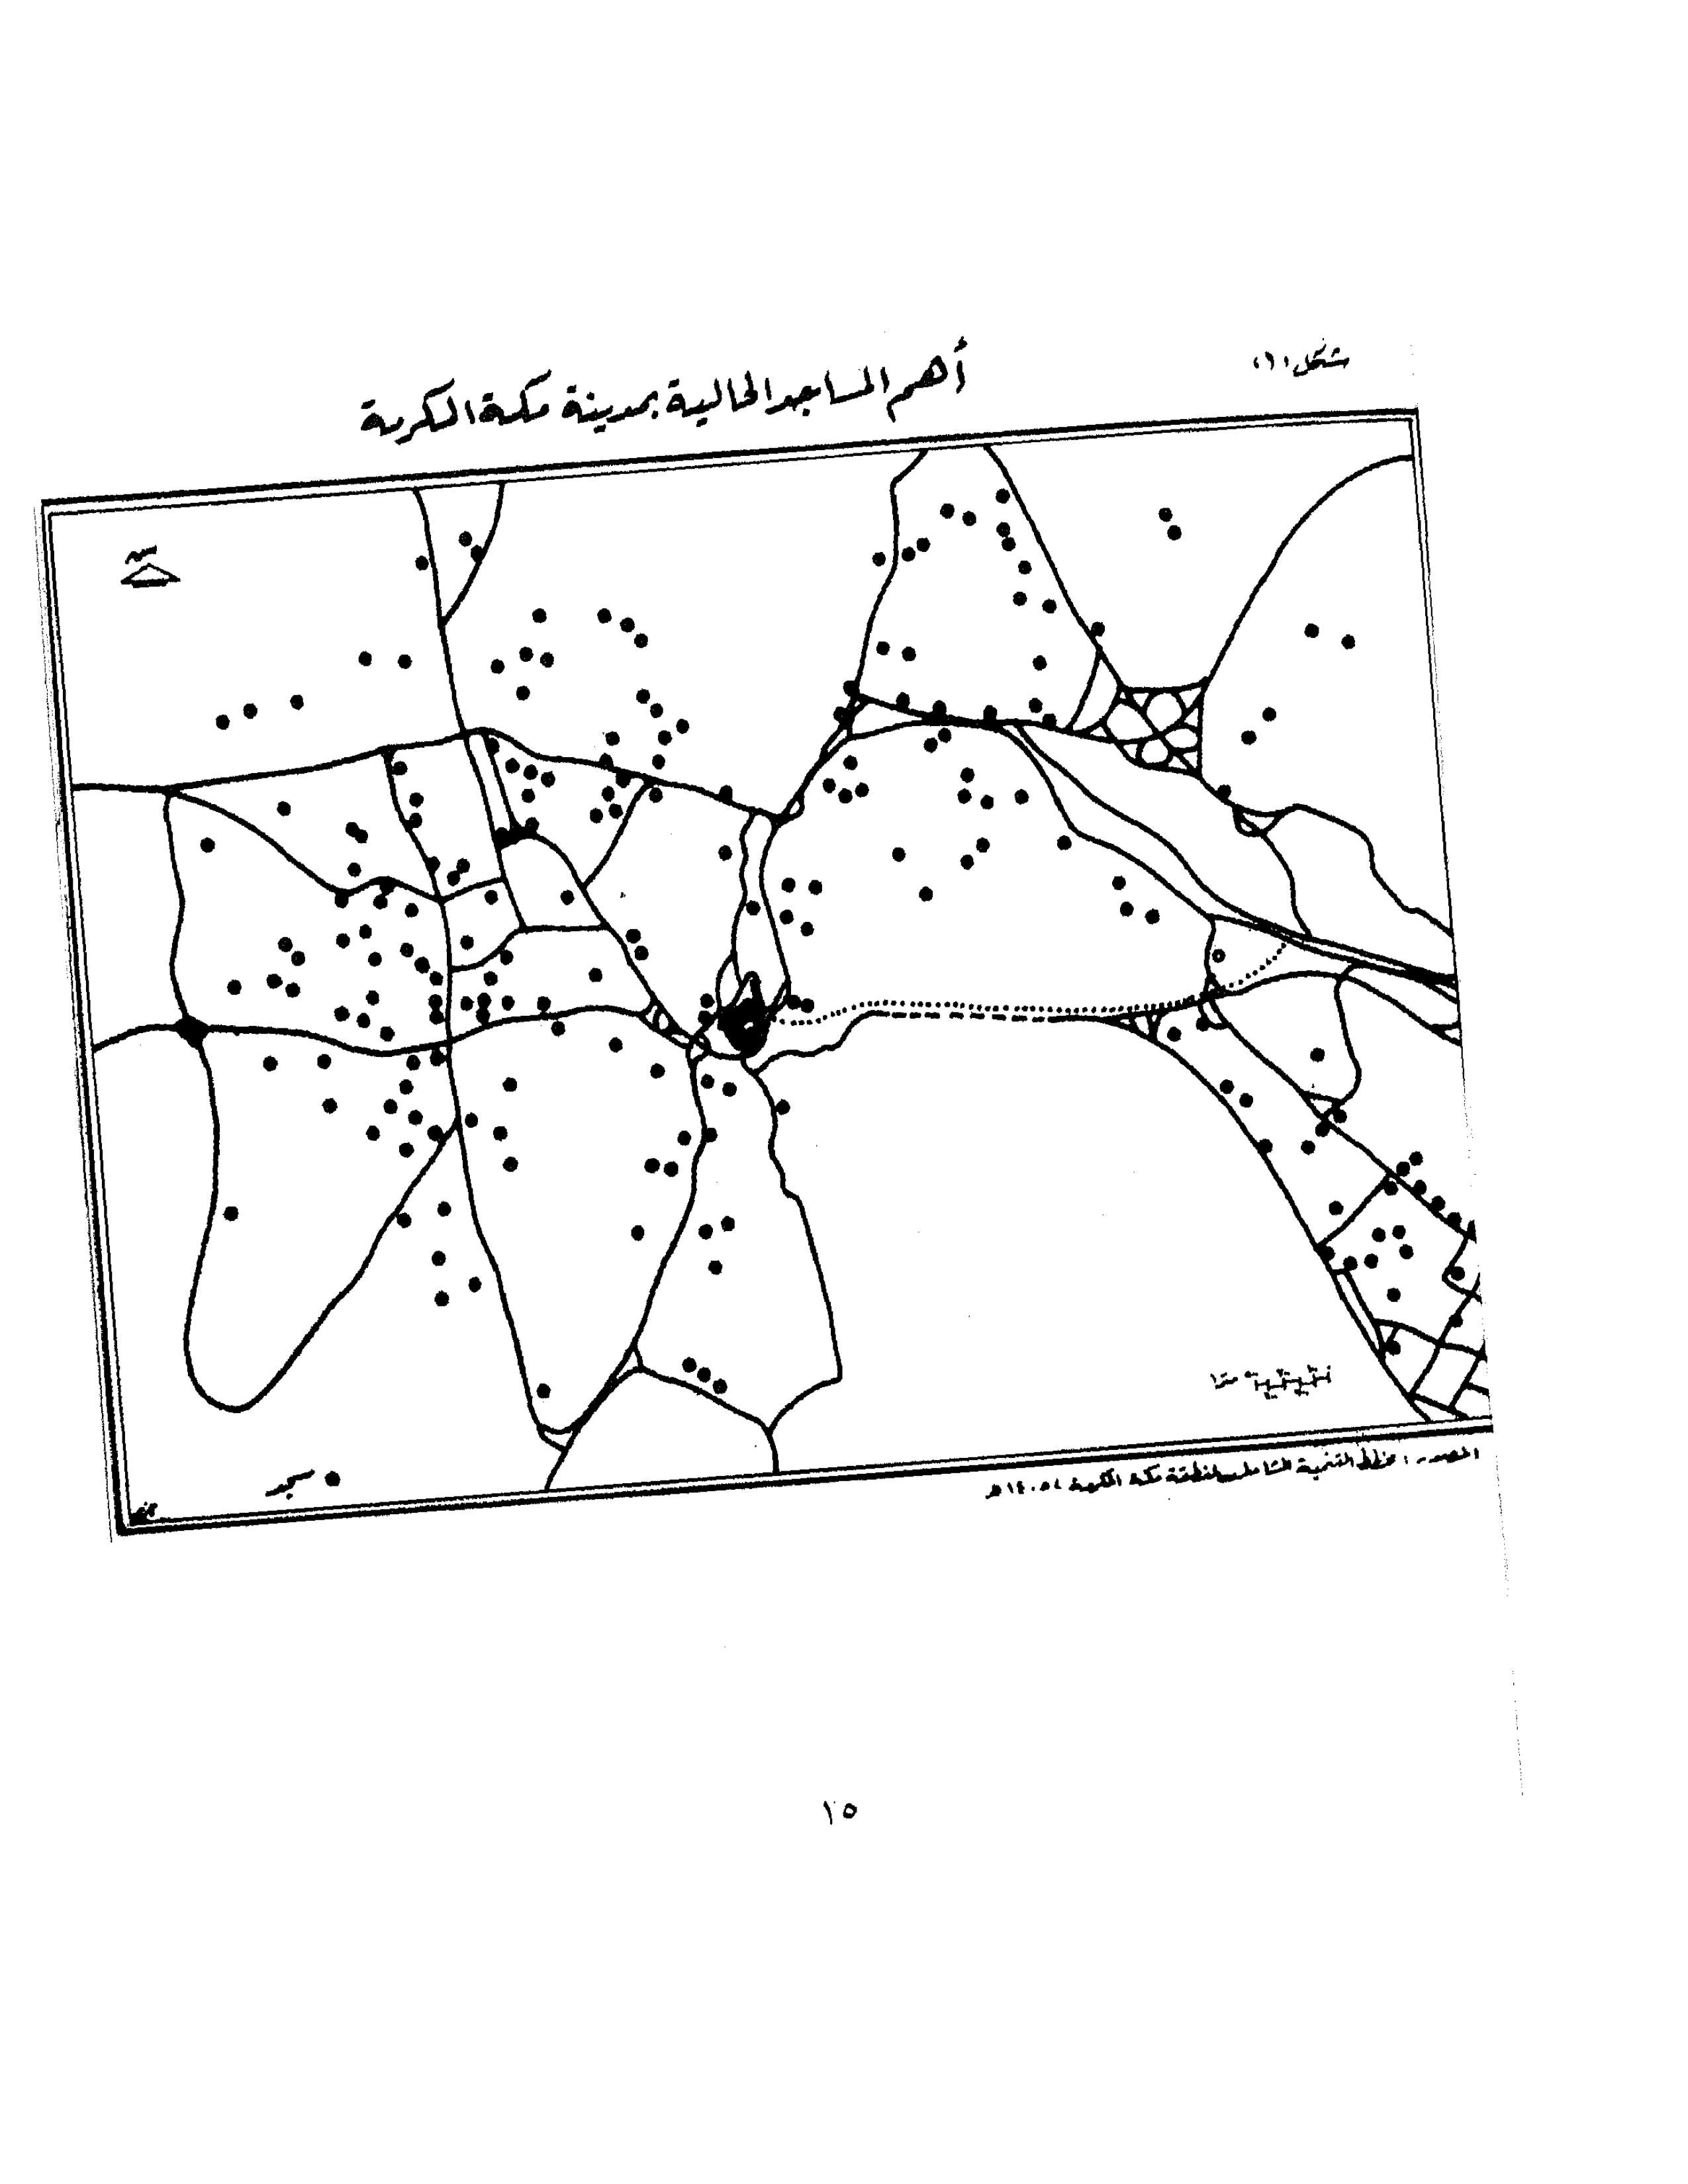 شكل (١)
أهم المساجد الحالية بمدينة مكة المكرمة
مسجد
المصدر : مخطط التنمية الشامل لمنطقة مكة المكرمة ١٤٠٥ هـ
١٥